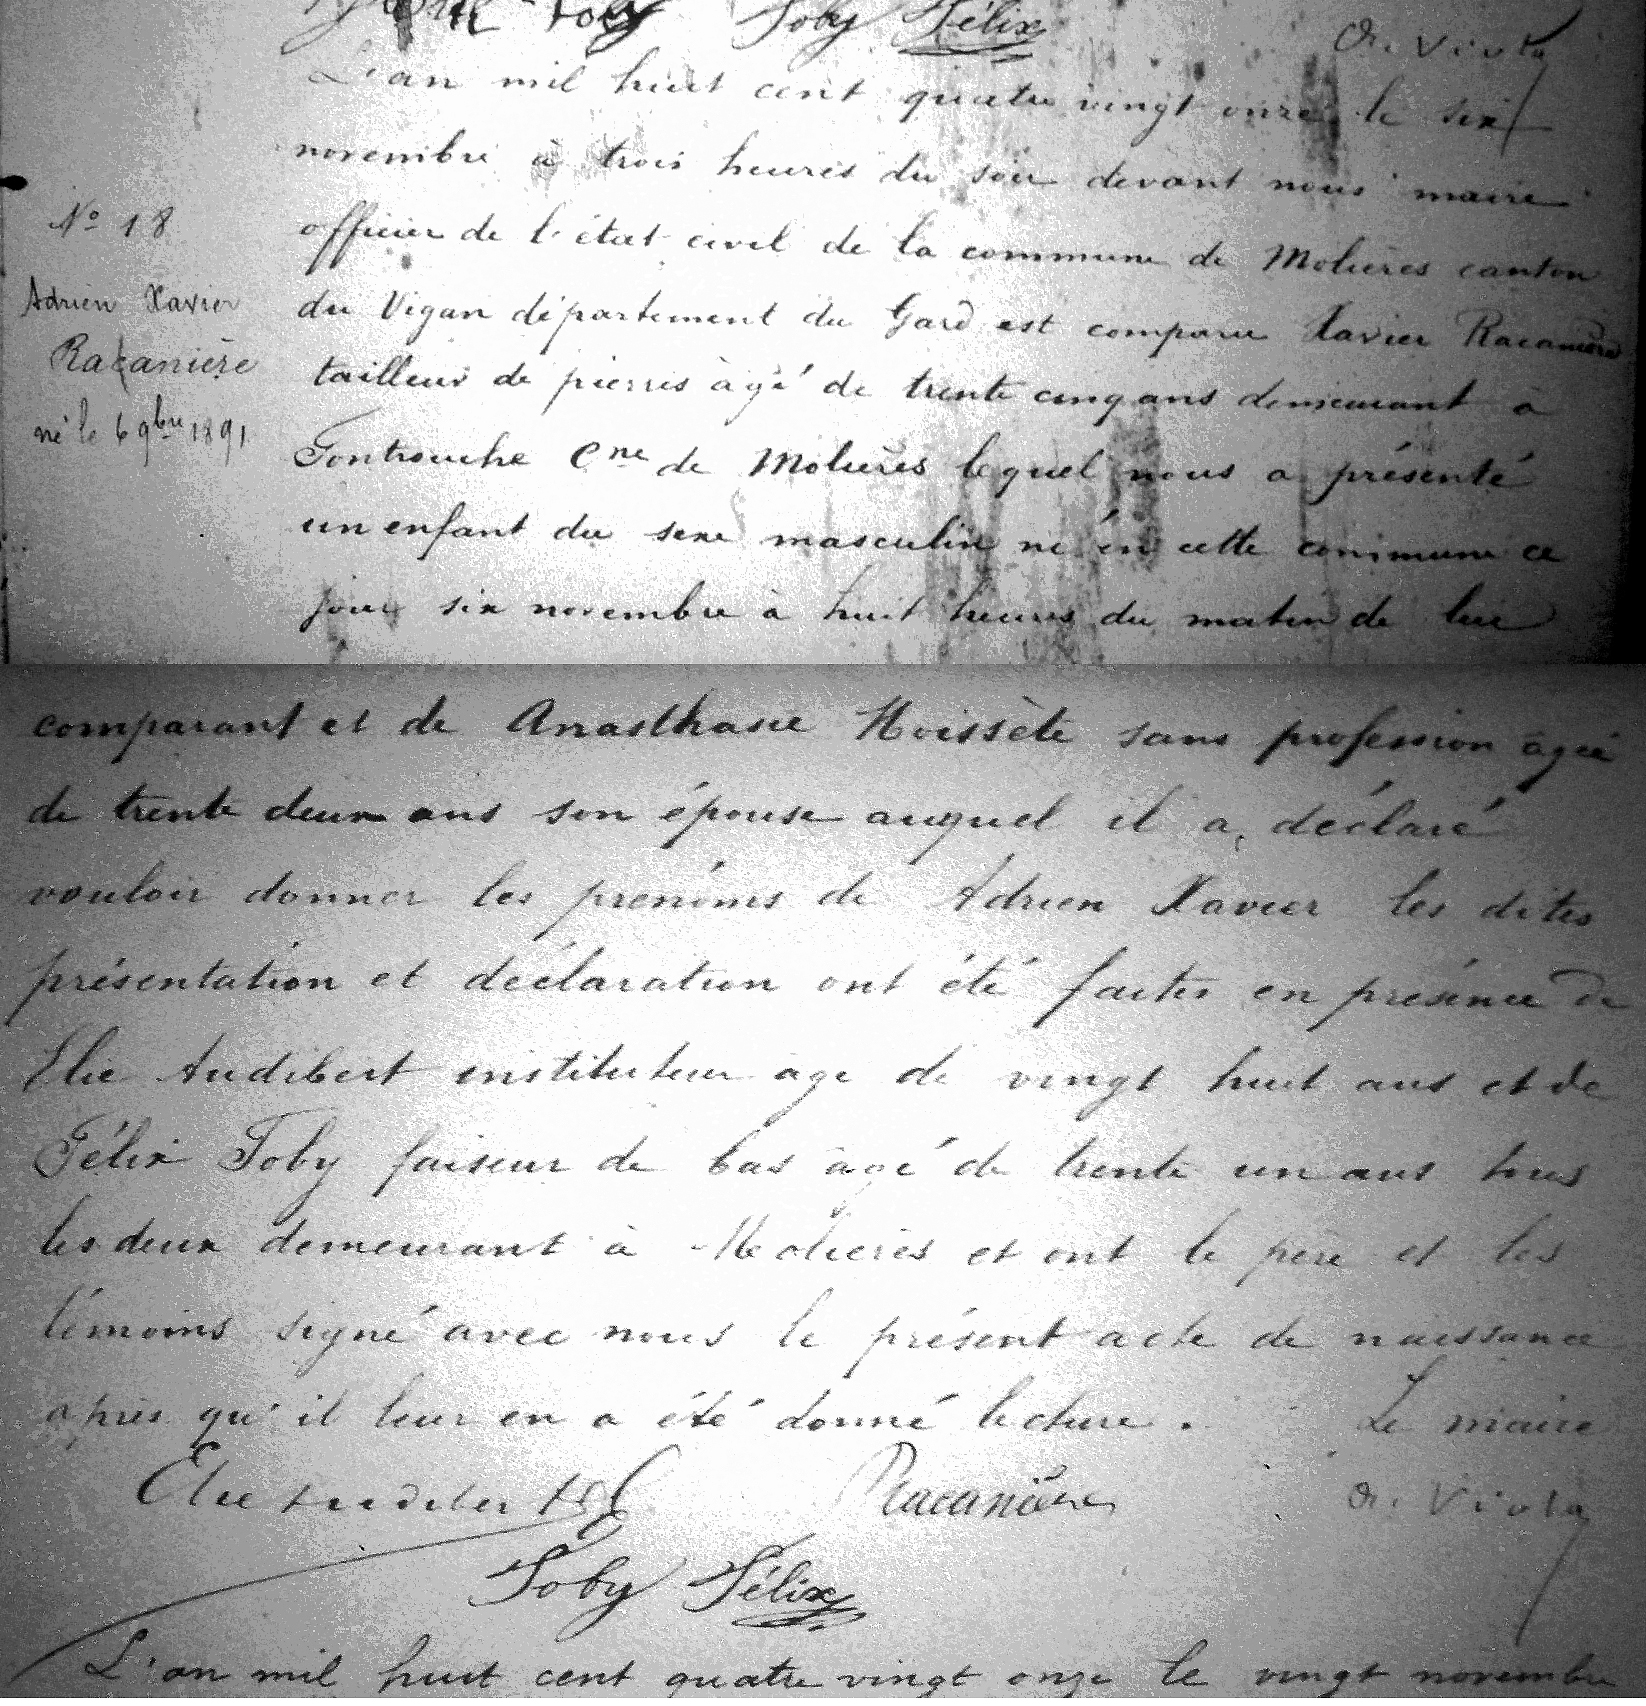 Toby Toby Félix
L'an mil huit cent quatre vingt onze le six
novembre à trois heures du soir devant nous maire
officier de l'état civil de la commune de Molières canton
du Vigan département du Gard est comparu Xavier Racanière
tailleur de pierres âgé de trente cinq ans demeurant à
Fontrouche Cne de Molières lequel nous a présenté
un enfant du sexe masculin né en cette commune ce
jour six novembre à huit heures du matin de lui
No 18
Adrien Xavier
Racanière
né le 6 9bre 1891
comparant et de Anasthasie Hoissète sans profession âgée
de trente deux ans son épouse auquel il a déclaré
vouloir donner les prénoms de Adrien Xavier les dites
présentation et déclaration ont été faites en présence de
Elie Audibert instituteur âgé de vingt huit ans et de
Félix Toby faiseur de bas âgé de trente un ans tous
les deux demeurant à Molières et ont le père et les
témoins signé avec nous le présent acte de naissance
après qu'il leur en a été donné lecture. Le maire
Elie Audibert Racanière
Toby Félix
L'an mil huit cent quatre vingt onze le vingt novembre